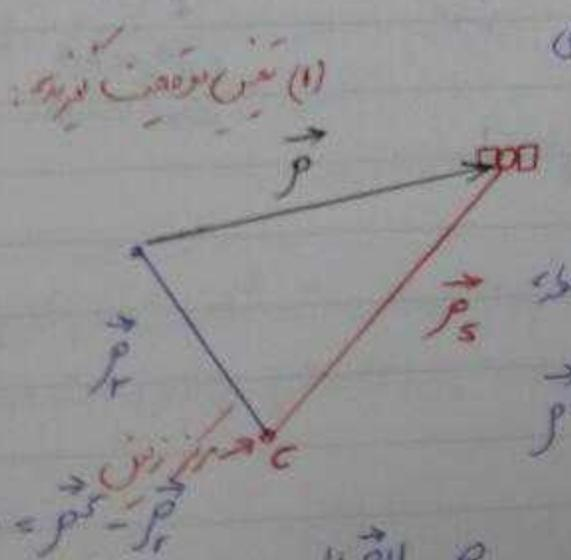 (۱) تعیین موقعیت گیرنده:
ρ⃗
ρ⃗ₛ
ρ⃗ᵣ
مرکز زمین → C
= ρ⃗ˢ - ρ⃗ᵣ